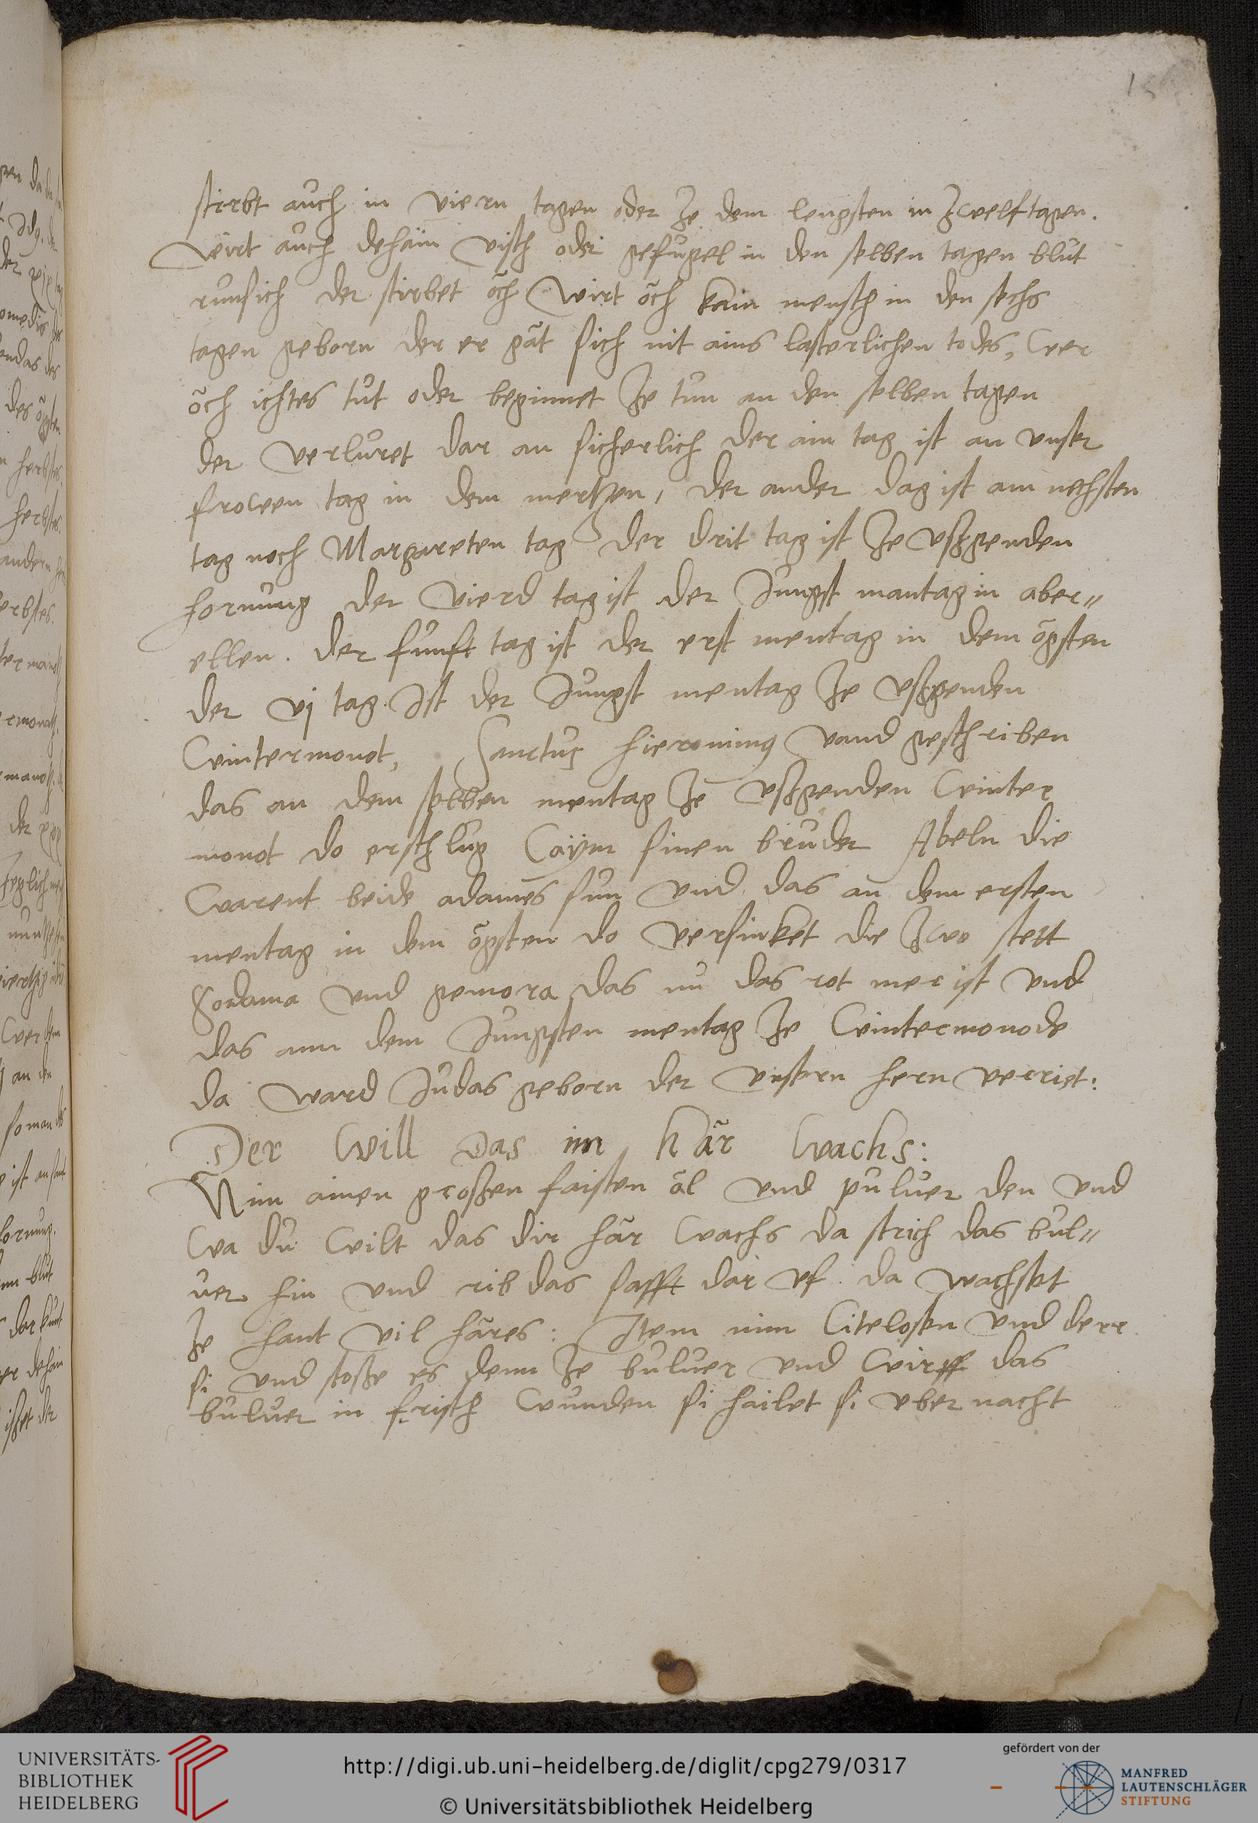 15
stirbt auch in viern tagen oder ze dem lengsten in zwelf tagen.
wirt auch dehain visch oder gefugel in den selben tagen blut
runsich der stirbet och wirt och kain mensch in den sechs
tagen geborn der er gat sich nit ains lasterlichen todes, wer
och ichtes tut oder beginnet ze tun an den selben tagen
der verluret dar an sicherlich der ain tag ist an unser
frowen tag in dem mertzen, der ander dag ist am nechsten
tag noch Margareten tag der drit tag ist ze ußgenden
hornung der vierd tag ist der Jungst mantag in aber=
ellen. der funft tag ist der erst mentag in dem ogsten
der vj tag Ist der Jungst mentag ze ußgenden
wintermonot, Sanctus hieronimus vand geschriben
das an dem selben mentag ze ußgenden winter
monot do erschlug Caym sinen bruder Abeln die
warent beide adames sun und das an dem ersten
mentag in dem ogsten do versinket die zwo stett
Sodama und gomora das nu das rot mer ist und
das ann dem Jungsten mentag ze wintermonode
da ward Judas geborn der unsern hern verriet:
Der will das im här wachs:
Nim ainen großen faisten äl und puluer den und
wa du wilt das dir här wachs da strich das bul=
uer hin und rib das safft dar uf. da wachset
ze hant vil häres: Item nim Citelosen und derr
si und stoße es denn ze buluer und wirff das
buluer in frisch wunden si hailet si uber nacht
UNIVERSITÄTS-
BIBLIOTHEK
HEIDELBERG
http://digi.ub.uni-heidelberg.de/diglit/cpg279/0317
© Universitätsbibliothek Heidelberg
gefördert von der
MANFRED
LAUTENSCHLÄGER
STIFTUNG